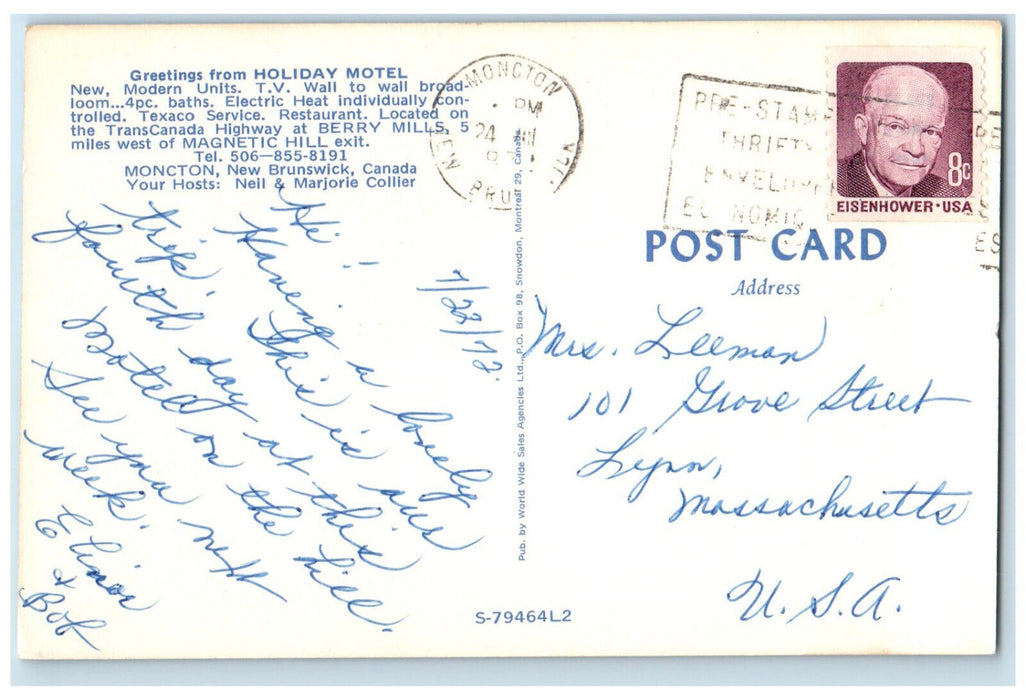 Greetings from HOLIDAY MOTEL
New, Modern Units. T.V. Wall to wall broad-
loom...4pc. baths. Electric Heat individually con-
trolled. Texaco Service. Restaurant. Located on
the TransCanada Highway at BERRY MILLS, 5
miles west of MAGNETIC HILL exit.
Tel. 506-855-8191
MONCTON, New Brunswick, Canada
Your Hosts: Neil & Marjorie Collier
7/23/72.
Hi!
Having a lovely
trip. This is our
fourth day at this
Motel on the hill.
See you next
week.
Elinor
& Bob
Pub. by World Wide Sales Agencies Ltd., P.O. Box 98, Snowdon, Montreal 29, Canada.
S-79464L2
MONCTON
PM
24
NEW BRUN
PRE-STAMP
THRIFTY
ENVELOPE
8c
EISENHOWER·USA
POST CARD
Address
Mrs. Leeman
101 Grove Street
Lynn,
Massachusetts
U.S.A.